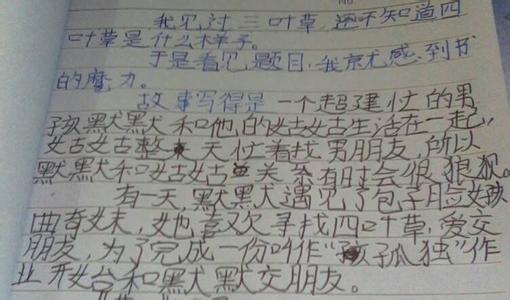 我见过三叶草，还不知道四
叶草是什么样子。
于是看见题目，我就感到书
的魔力。
故事写得是一个超健忙的男
孩默默和他的姑姑生活在一起，
姑姑整天忙着找男朋友，所以
默默和姑姑关系有时会很狼狈。
有一天，默默遇见了包子脸女孩
曲奇妹，她喜欢寻找四叶草，爱交
朋友，为了完成一份叫作“孩孤独”作
业开始和默默交朋友。